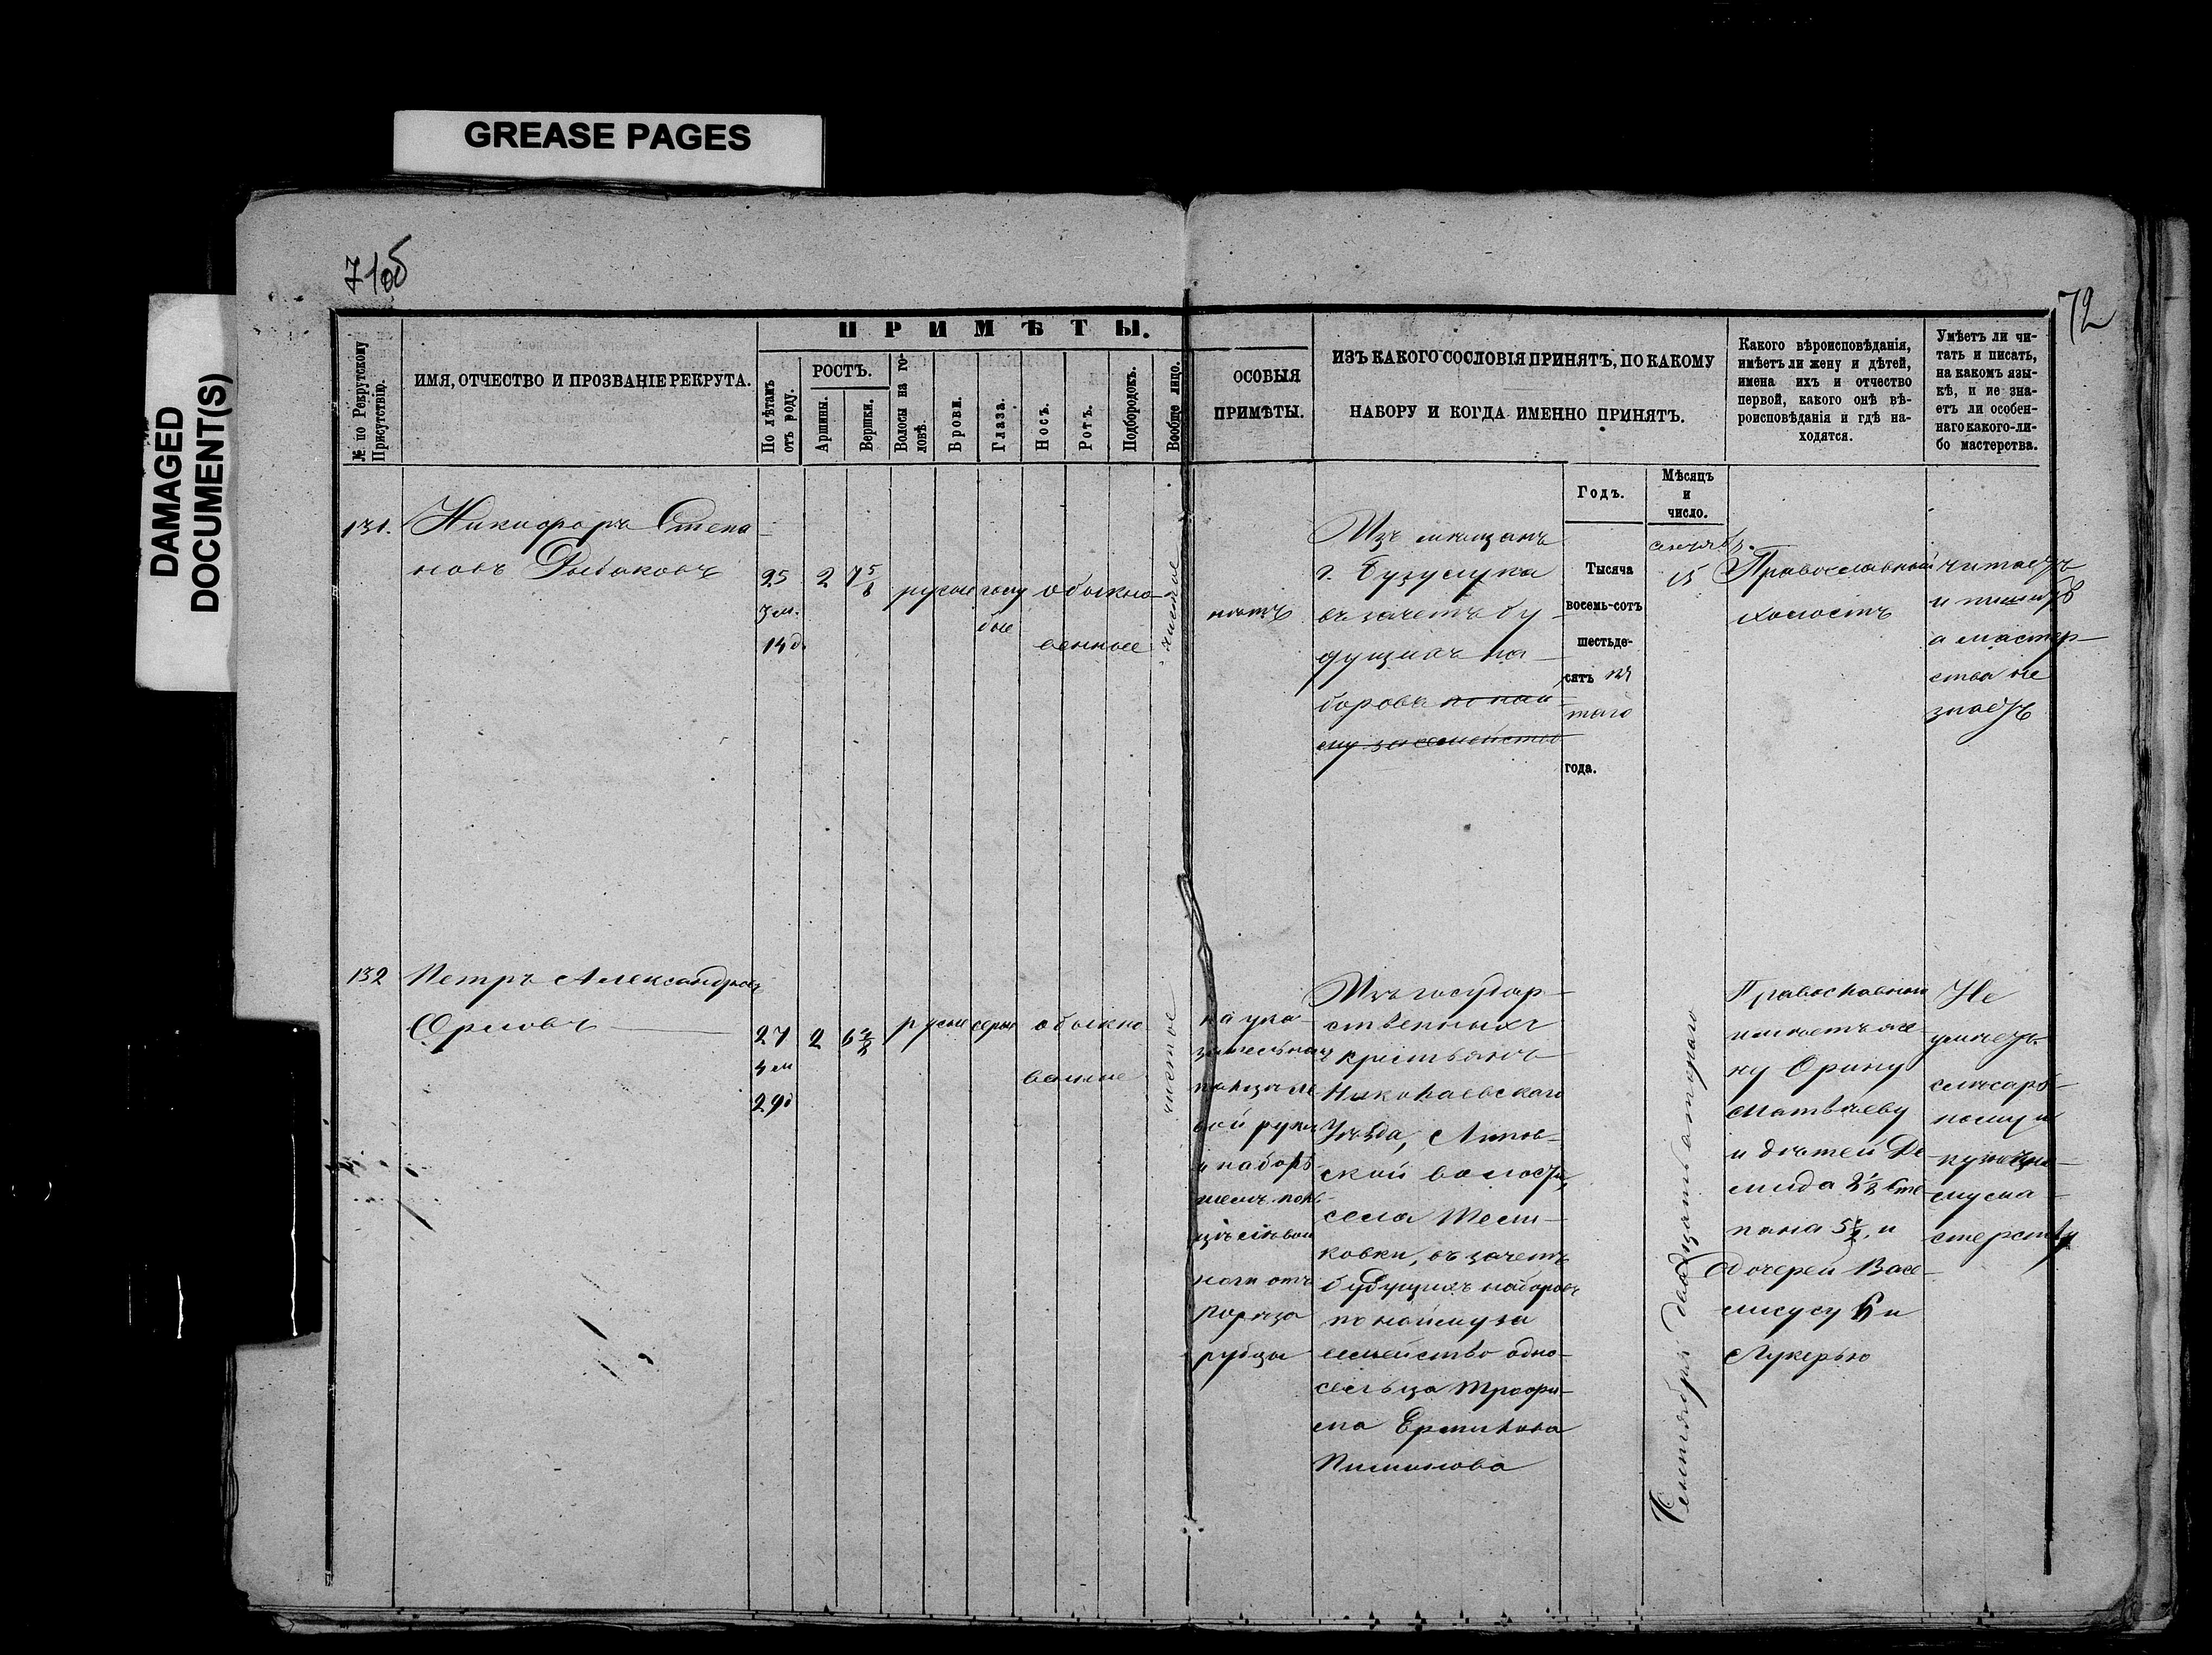 GREASE PAGES
DAMAGED
DOCUMENT(S)
71об
72
№ по Рекрутскому Присутствію.
ИМЯ, ОТЧЕСТВО И ПРОЗВАНІЕ РЕКРУТА.
ПРИМѢТЫ.
По лѣтамъ отъ роду.
РОСТЪ.
Аршины.
Вершки.
Волосы на головѣ.
Брови.
Глаза.
Носъ.
Ротъ.
Подбородокъ.
Вообще лицо.
ОСОБЫЯ
ПРИМѢТЫ.
ИЗЪ КАКОГО СОСЛОВІЯ ПРИНЯТЪ, ПО КАКОМУ
НАБОРУ И КОГДА ИМЕННО ПРИНЯТЪ.
Какого вѣроисповѣданія,
имѣетъ ли жену и дѣтей,
имена ихъ и отчество
первой, какого онѣ вѣ-
роисповѣданія и гдѣ на-
ходятся.
Умѣетъ ли чи-
тать и писать,
на какомъ язы-
кѣ, и не зна-
етъ ли особен-
наго какого-ли-
бо мастерства.
Годъ.
Мѣсяцъ
и
число.
131.
Никифоръ Степа
новъ Рыбаковъ
25
3 м.
14 д.
2
7 5/8
русые
голу
бые
обыкно
венные
чистое
нѣтъ
Изъ мѣщанъ
г. Бузулука
въ зачетъ бу
дущихъ на-
боровъ по най
му за семейство
Тысяча
восемь-сотъ
шестьде-
сятъ пя
таго
года.
сентяб.
15
Православный
холостъ
читаетъ
и пишетъ
а мастер-
ства не
знаетъ
132
Петръ Александровъ
Орловъ
27
2
русые
серые
обыкно
венные
29 д
чистое
на ука
зательномъ
пальцѣ лѣ
вой руки
ноги отъ
порѣза
рубцы
Изъ государ-
ственныхъ
крестьянъ
Николаевскаго
Уѣзда, Липов-
ской волости,
села
ковки, въ зачетъ
будущихъ наборовъ
по найму за
семейство одно-
сельца Трофи-
ма
Пиминова
Сентября двадцать втораго
Православный
имѣетъ же
ну Орину
Матвѣеву
и дѣтей Де
мида 2 1/2 Сте
пана 5 1/2, и
дочерей Васи-
лису 6 и
Лукерью
Не
умѣетъ.
слѣсар-
ному и
кузнечно-
му ма-
стерству